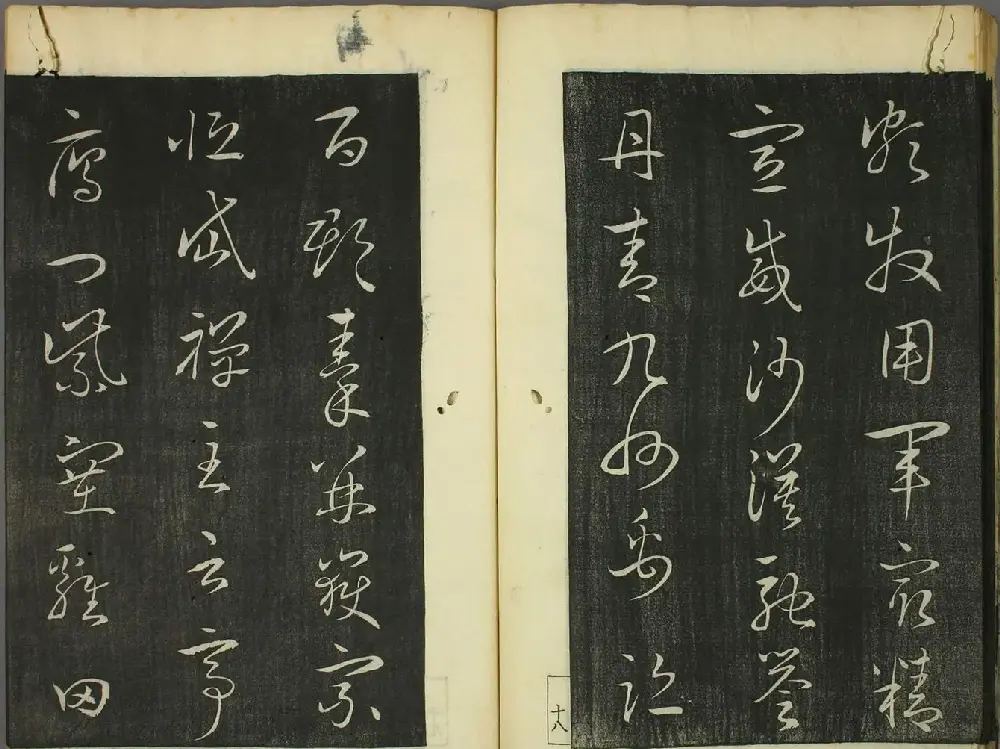 頗牧用軍㝡精
宣威沙漠馳譽
丹青九州禹跡
十八
百郡秦并嶽宗
恒岱禪主云亭
鴈門紫塞雞田